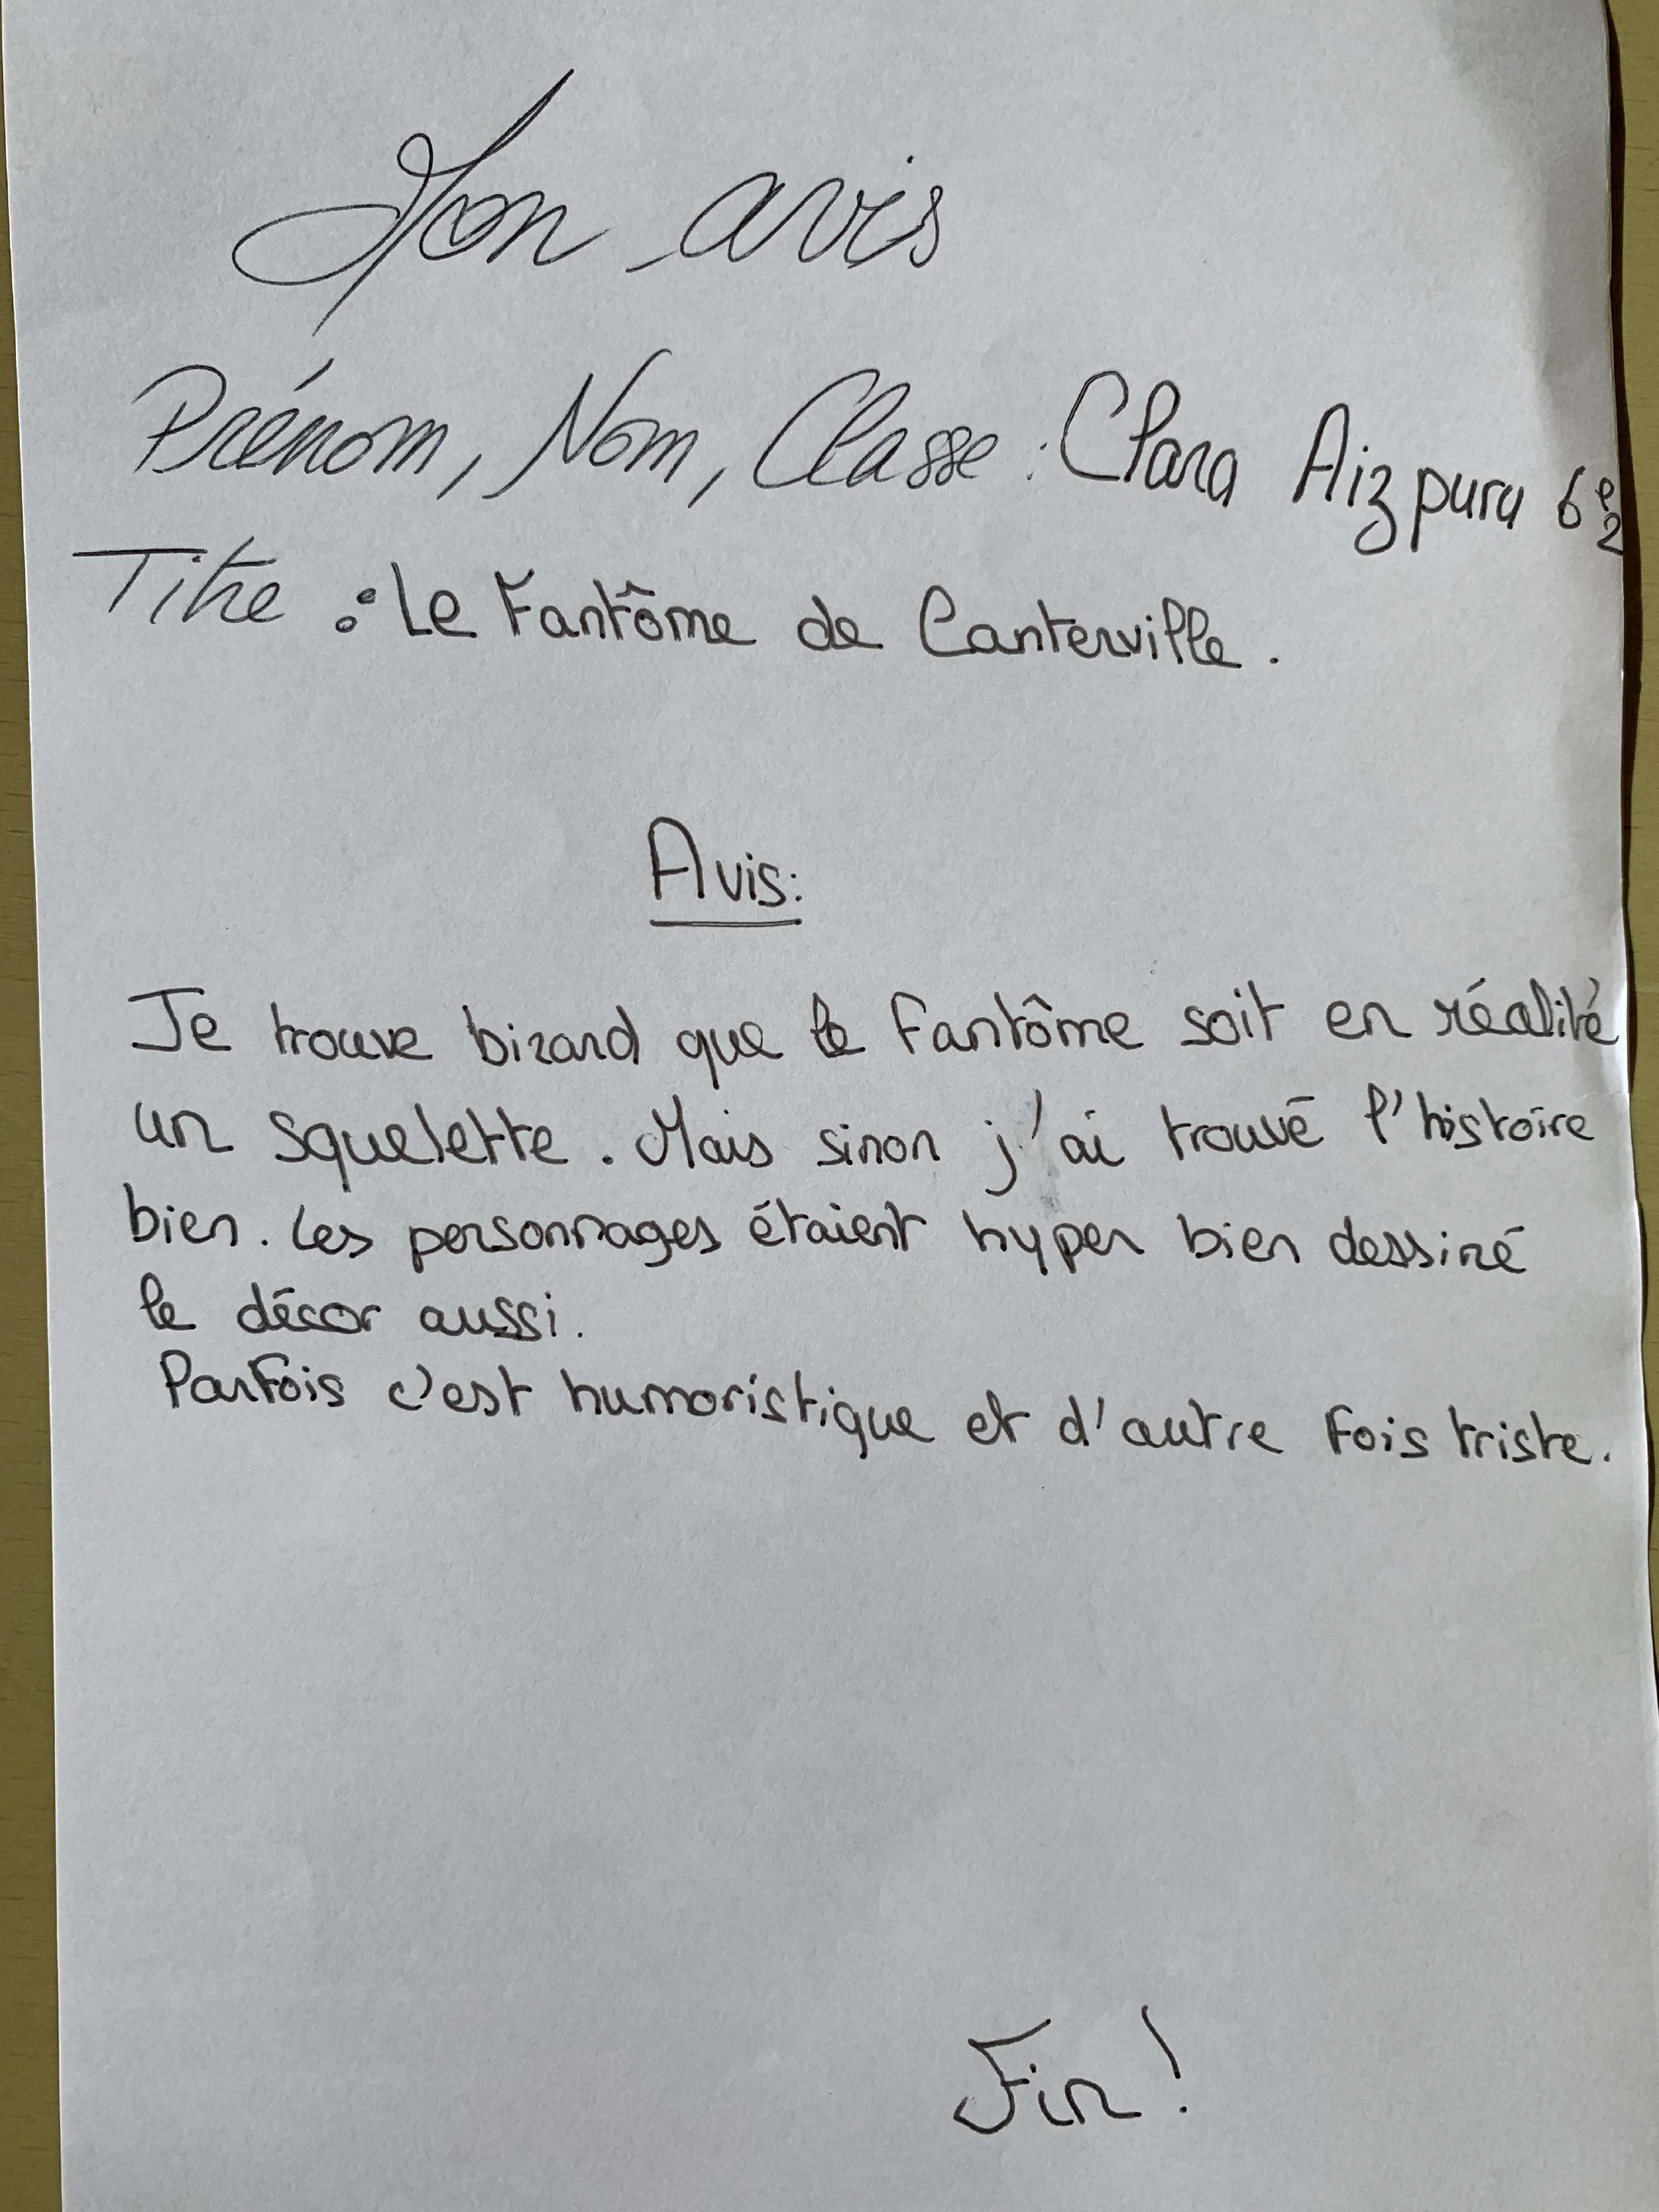 Mon avis
Prénom, Nom, Classe : Clara Aizpuru 6e2
Titre : Le Fantôme de Canterville.
Avis:
Je trouve bizard que le fantôme soit en réalité
un squelette. Mais sinon j'ai trouvé l'histoire
bien. Les personnages étaient hyper bien dessiné
le décor aussi.
Parfois c'est humoristique et d'autre fois triste.
Fin !